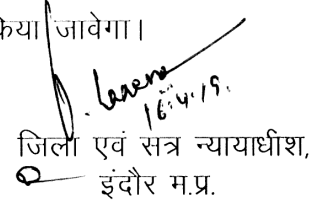 किया जावेगा।
16.4.19.
जिला एवं सत्र न्यायाधीश,
इंदौर म.प्र.